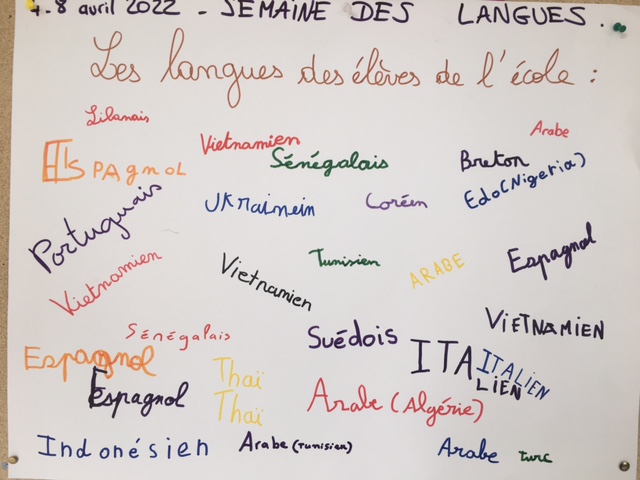 4-8 avril 2022 - SEMAINE DES LANGUES.
Les langues des élèves de l'école :
Libanais
Arabe
Vietnamien
Espagnol
Sénégalais
Breton
Edo (Nigeria)
Portuguais
Ukrainein
Coréen
Vietnamien
Vietnamien
Tunisien
ARABE
Espagnol
Sénégalais
Suédois
VIETNAMIEN
Espagnol
Thaï
ITALIEN
ITALIEN
Espagnol
Thaï
Arabe (Algérie)
Indonésien
Arabe (Tunisien)
Arabe
turc